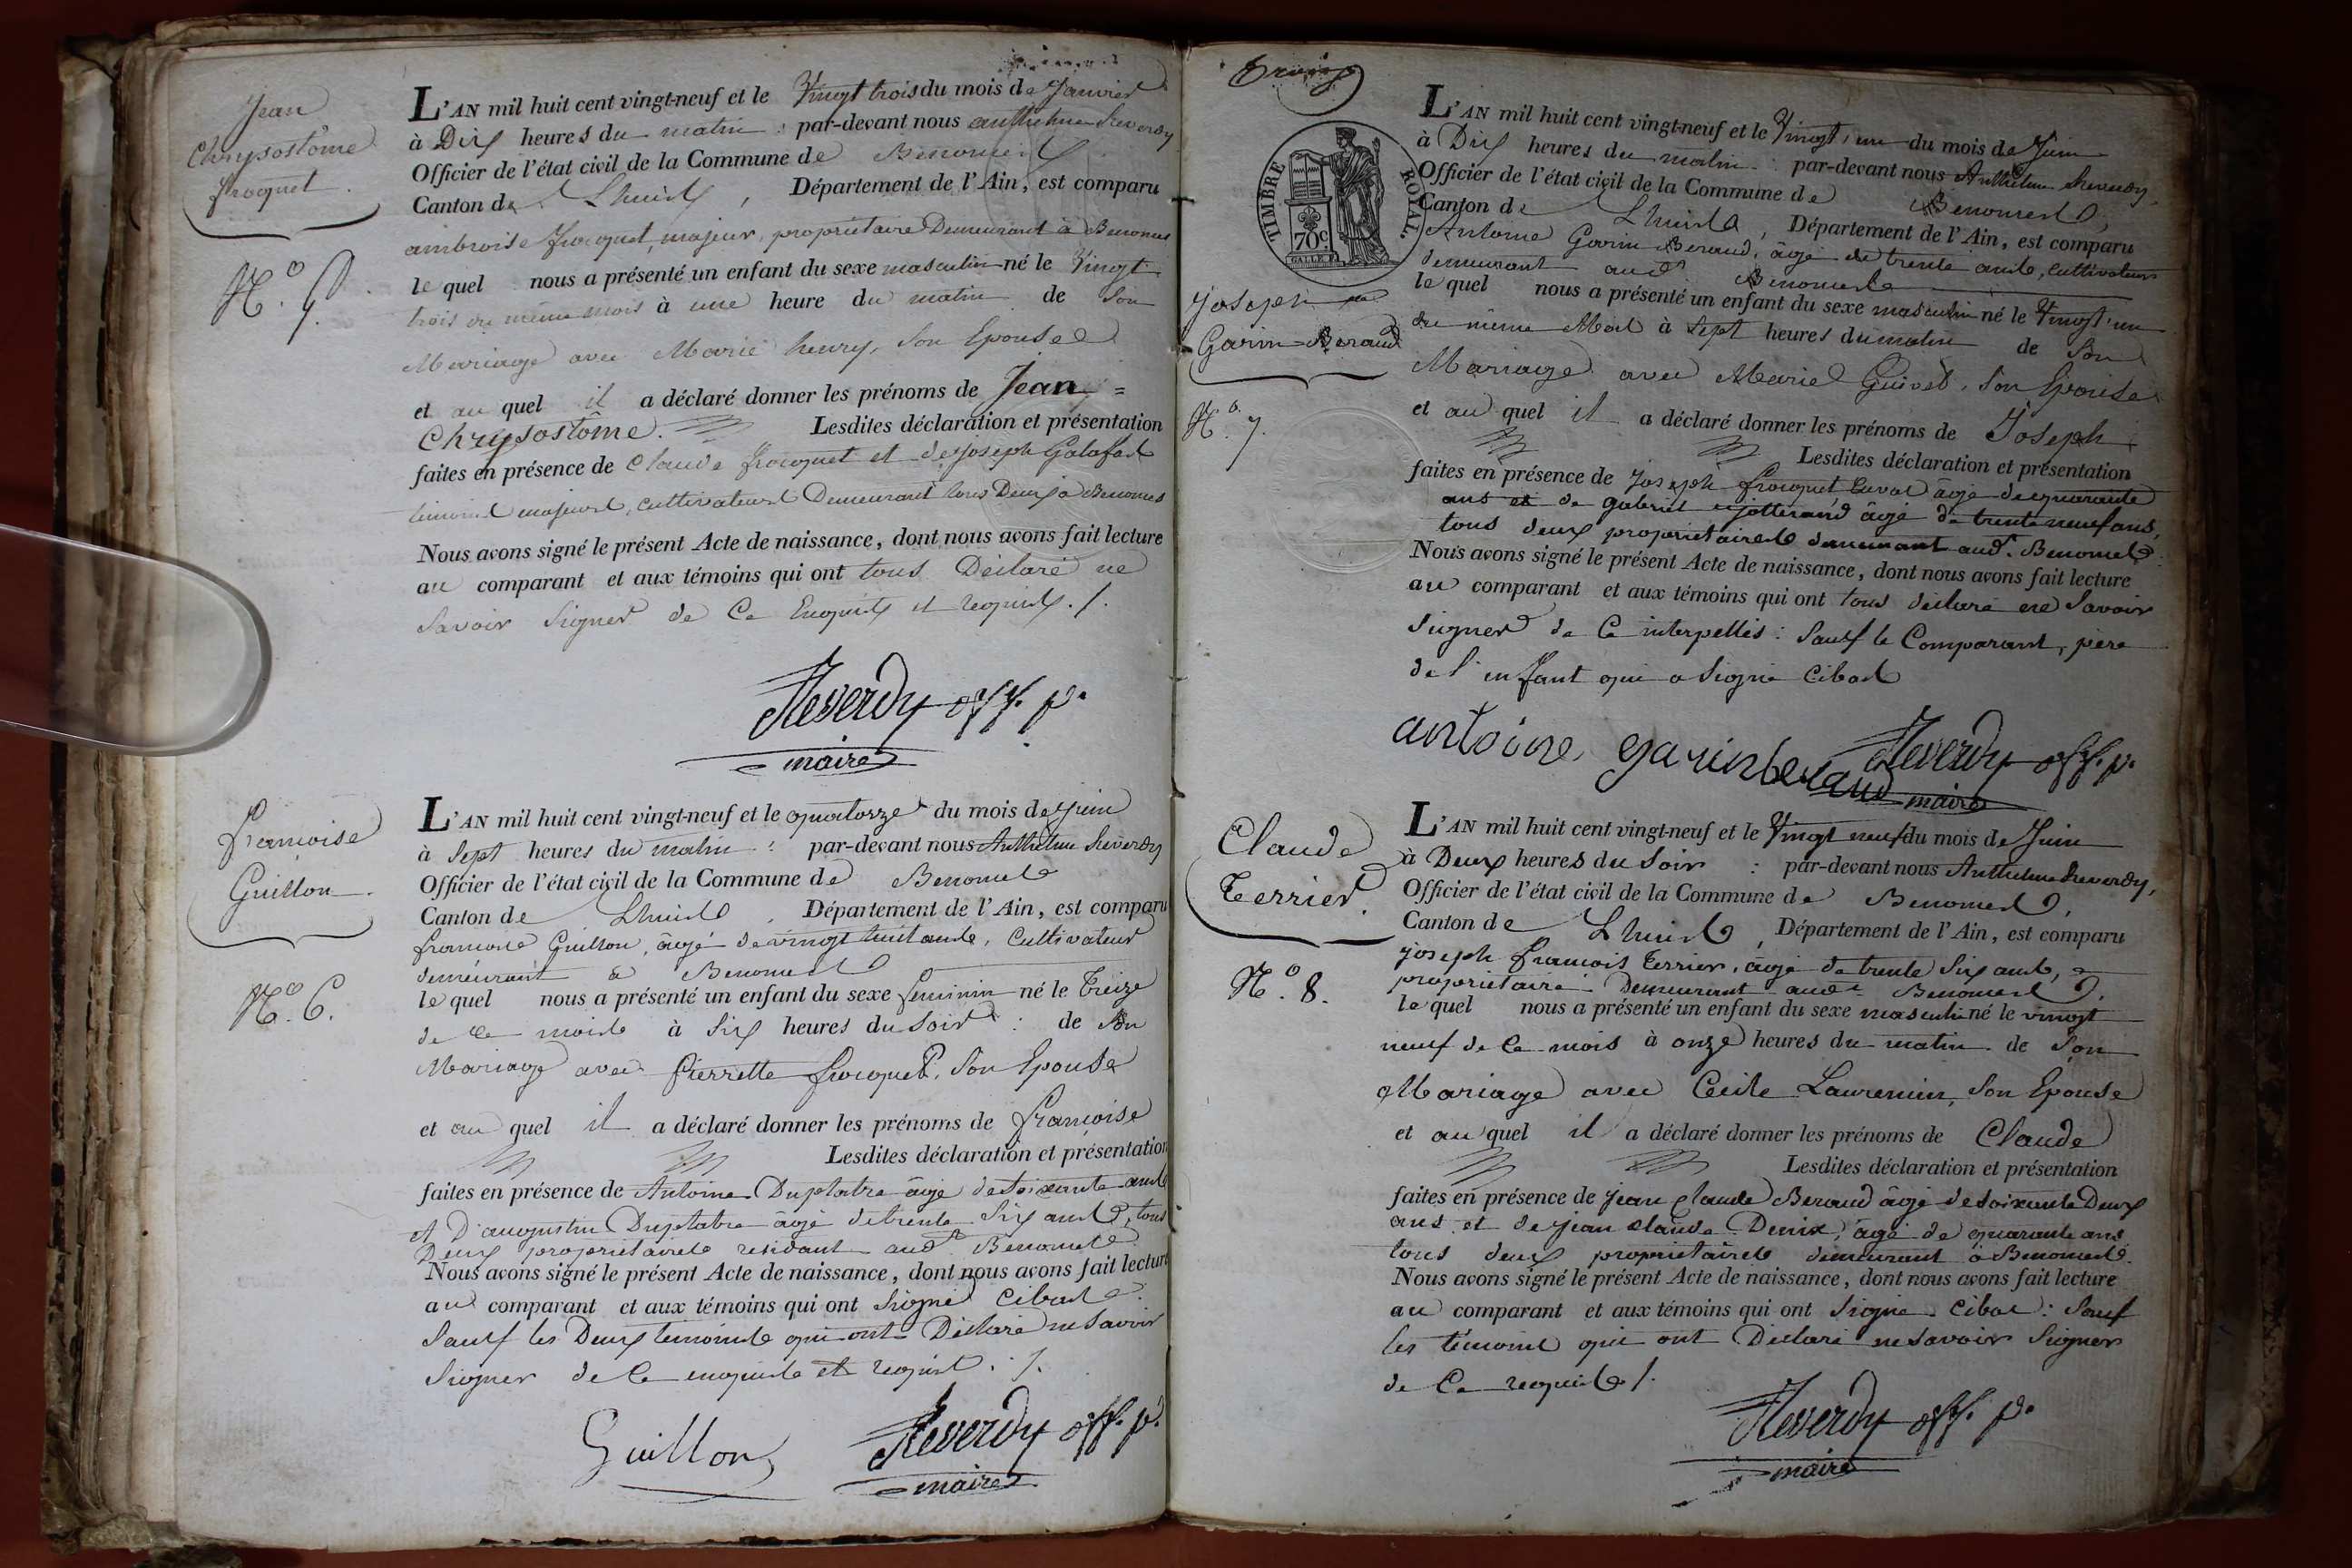 Jean
Chrysostôme
frocquet
N.° 5.
L'AN mil huit cent vingt-neuf et le Vingt trois du mois de Janvier
à Dix heures du matin : par-devant nous anthelme Reverdy
Officier de l'état civil de la Commune de Benonces
Canton de Lhuis, Département de l'Ain, est comparu
ambroise frocquet, majeur, propriétaire Demeurant à Benonces
le quel nous a présenté un enfant du sexe masculin né le Vingt
trois du même mois à une heure du matin de Son
Mariage avec Marie henry, Son Epouse
et au quel il a déclaré donner les prénoms de Jean =
Chrysostôme. Lesdites déclaration et présentation
faites en présence de Claude frocquet et de joseph
témoins majeurs, cultivateurs Demeurant tous Deux à Benonces
Nous avons signé le présent Acte de naissance, dont nous avons fait lecture
au comparant et aux témoins qui ont tous Déclaré ne
Savoir Signer de Ce Enquis et requis ./.
Reverdy off. p.
maire
françoise
Guillon
N.° 6.
L'AN mil huit cent vingt-neuf et le quatorze du mois de juin
à Sept heures du matin : par-devant nous Anthelme Reverdy
Officier de l'état civil de la Commune de Benonces
Canton de Lhuis, Département de l'Ain, est comparu
Guillon, âgé de vingt huit ans, Cultivateur
demeurant à Benonces
le quel nous a présenté un enfant du sexe feminin né le Treize
de ce mois à Six heures du Soir : de Son
Mariage avec Pierrette frocquet, Son Epouse
et au quel il a déclaré donner les prénoms de françoise
Lesdites déclaration et présentation
faites en présence de Antoine Duplatre âgé de Soixante ans
et D'augustin Duplatre âgé de trente Six ans, tous
Deux propriétaires résidant aud.t Benonces
Nous avons signé le présent Acte de naissance, dont nous avons fait lecture
au comparant et aux témoins qui ont Signé Cibas
Sauf les Deux témoins qui ont Déclaré ne Savoir
Signer de Ce enquis et requis ./.
Guillon
Reverdy off. p.
maire
TIMBRE ROYAL.
70c
Joseph
Garin-Beraud
N.° 7.
L'AN mil huit cent vingt-neuf et le Vingt un du mois de Juin
à Dix heures du matin : par-devant nous Anthelme Reverdy,
Officier de l'état civil de la Commune de Benonces,
Canton de Lhuis, Département de l'Ain, est comparu
Antoine Garin-Beraud, âgé de trente ans, cultivateur
demeurant aud.t Benonces
le quel nous a présenté un enfant du sexe masculin né le Vingt un
du même Mois à Sept heures du matin de Son
Mariage avec Marie, Son Epouse
et au quel il a déclaré donner les prénoms de Joseph
Lesdites déclaration et présentation
faites en présence de joseph frocquet âgé de quarante
ans et de gabriel âgé de trente neuf ans,
tous deux propriétaires demeurant aud.t Benonces
Nous avons signé le présent Acte de naissance, dont nous avons fait lecture
au comparant et aux témoins qui ont tous déclaré ne Savoir
Signer de Ce interpellés : Sauf le Comparant, père
de l'enfant qui a Signé Cibas
antoine garinberaud
Reverdy off. p.
maire
Claude
Terrier
N.° 8.
L'AN mil huit cent vingt-neuf et le Vingt neuf du mois de Juin
à Deux heures du Soir : par-devant nous Anthelme Reverdy,
Officier de l'état civil de la Commune de Benonces,
Canton de Lhuis, Département de l'Ain, est comparu
joseph françois Terrier, âgé de trente Six ans,
propriétaire Demeurant aud.t Benonces.
le quel nous a présenté un enfant du sexe masculin né le vingt
neuf de Ce mois à onze heures du matin de Son
Mariage avec Cecile Laurencin, Son Epouse
et au quel il a déclaré donner les prénoms de Claude
Lesdites déclaration et présentation
faites en présence de jean Claude Beraud âgé de Soixante Deux
ans et de jean claude, âgé de quarante ans
tous deux propriétaires demeurant à Benonces.
Nous avons signé le présent Acte de naissance, dont nous avons fait lecture
au comparant et aux témoins qui ont Signé Cibas : Sauf
les témoins qui ont Déclaré ne Savoir Signer
de Ce requis ./.
Reverdy off. p.
maire